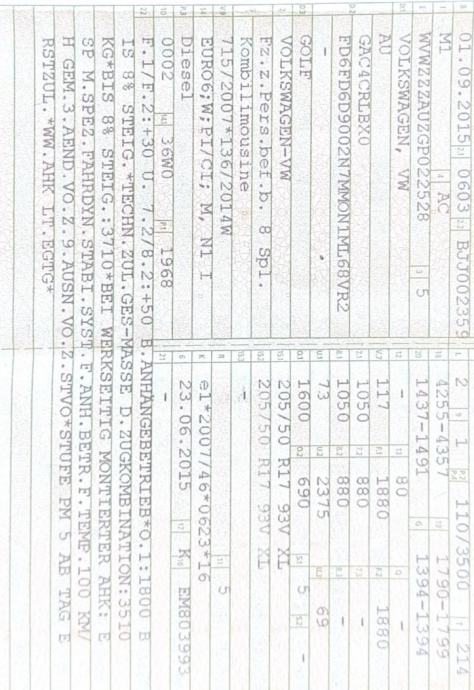 01.09.2015 0603 BJU000235 9
M1 AC
WVWZZZAUZGP022528 5
VOLKSWAGEN, VW
AU
GAC4CRLBX0
FD6FD6D9002N7MMON1ML68VR2
-
GOLF
VOLKSWAGEN-VW
Fz.z.Pers.bef.b. 8 Spl.
Kombilimousine
715/2007*136/2014W
EURO6;W;PI/CI; M, N1 I
Diesel
0002 36W0 1968
L 2 1 110/3500 214
4255-4357 1790-1799
1437-1491 1394-1394
- 80 -
117 1880 1880
1050 880 -
1050 880 -
73 2375 69
1600 690 5 -
205/50 R17 93V XL
205/50 R17 93V XL
-
5
e1*2007/46*0623*16
23.06.2015 K EM8039993
-
F.1/F.2:+30 U. 7.2/8.2:+50 B.ANHÄNGEBETRIEB*O.1:1800 B
IS 8% STEIG.*TECHN.ZUL.GES-MASSE D.ZUGKOMBINATION:3510
KG*BIS 8% STEIG.:3710*BEI WERKSEITIG MONTIERTER AHK: E
SP M.SPEZ.FAHRDYN.STABI.SYST.F.ANH.BETR.F.TEMP.100 KM/
H GEM.3.AEND.VO.Z.9.AUSN.VO.Z.STVO*STUFE PM 5 AB TAG E
RSTZUL.*WW.AHK LT.EGTG*